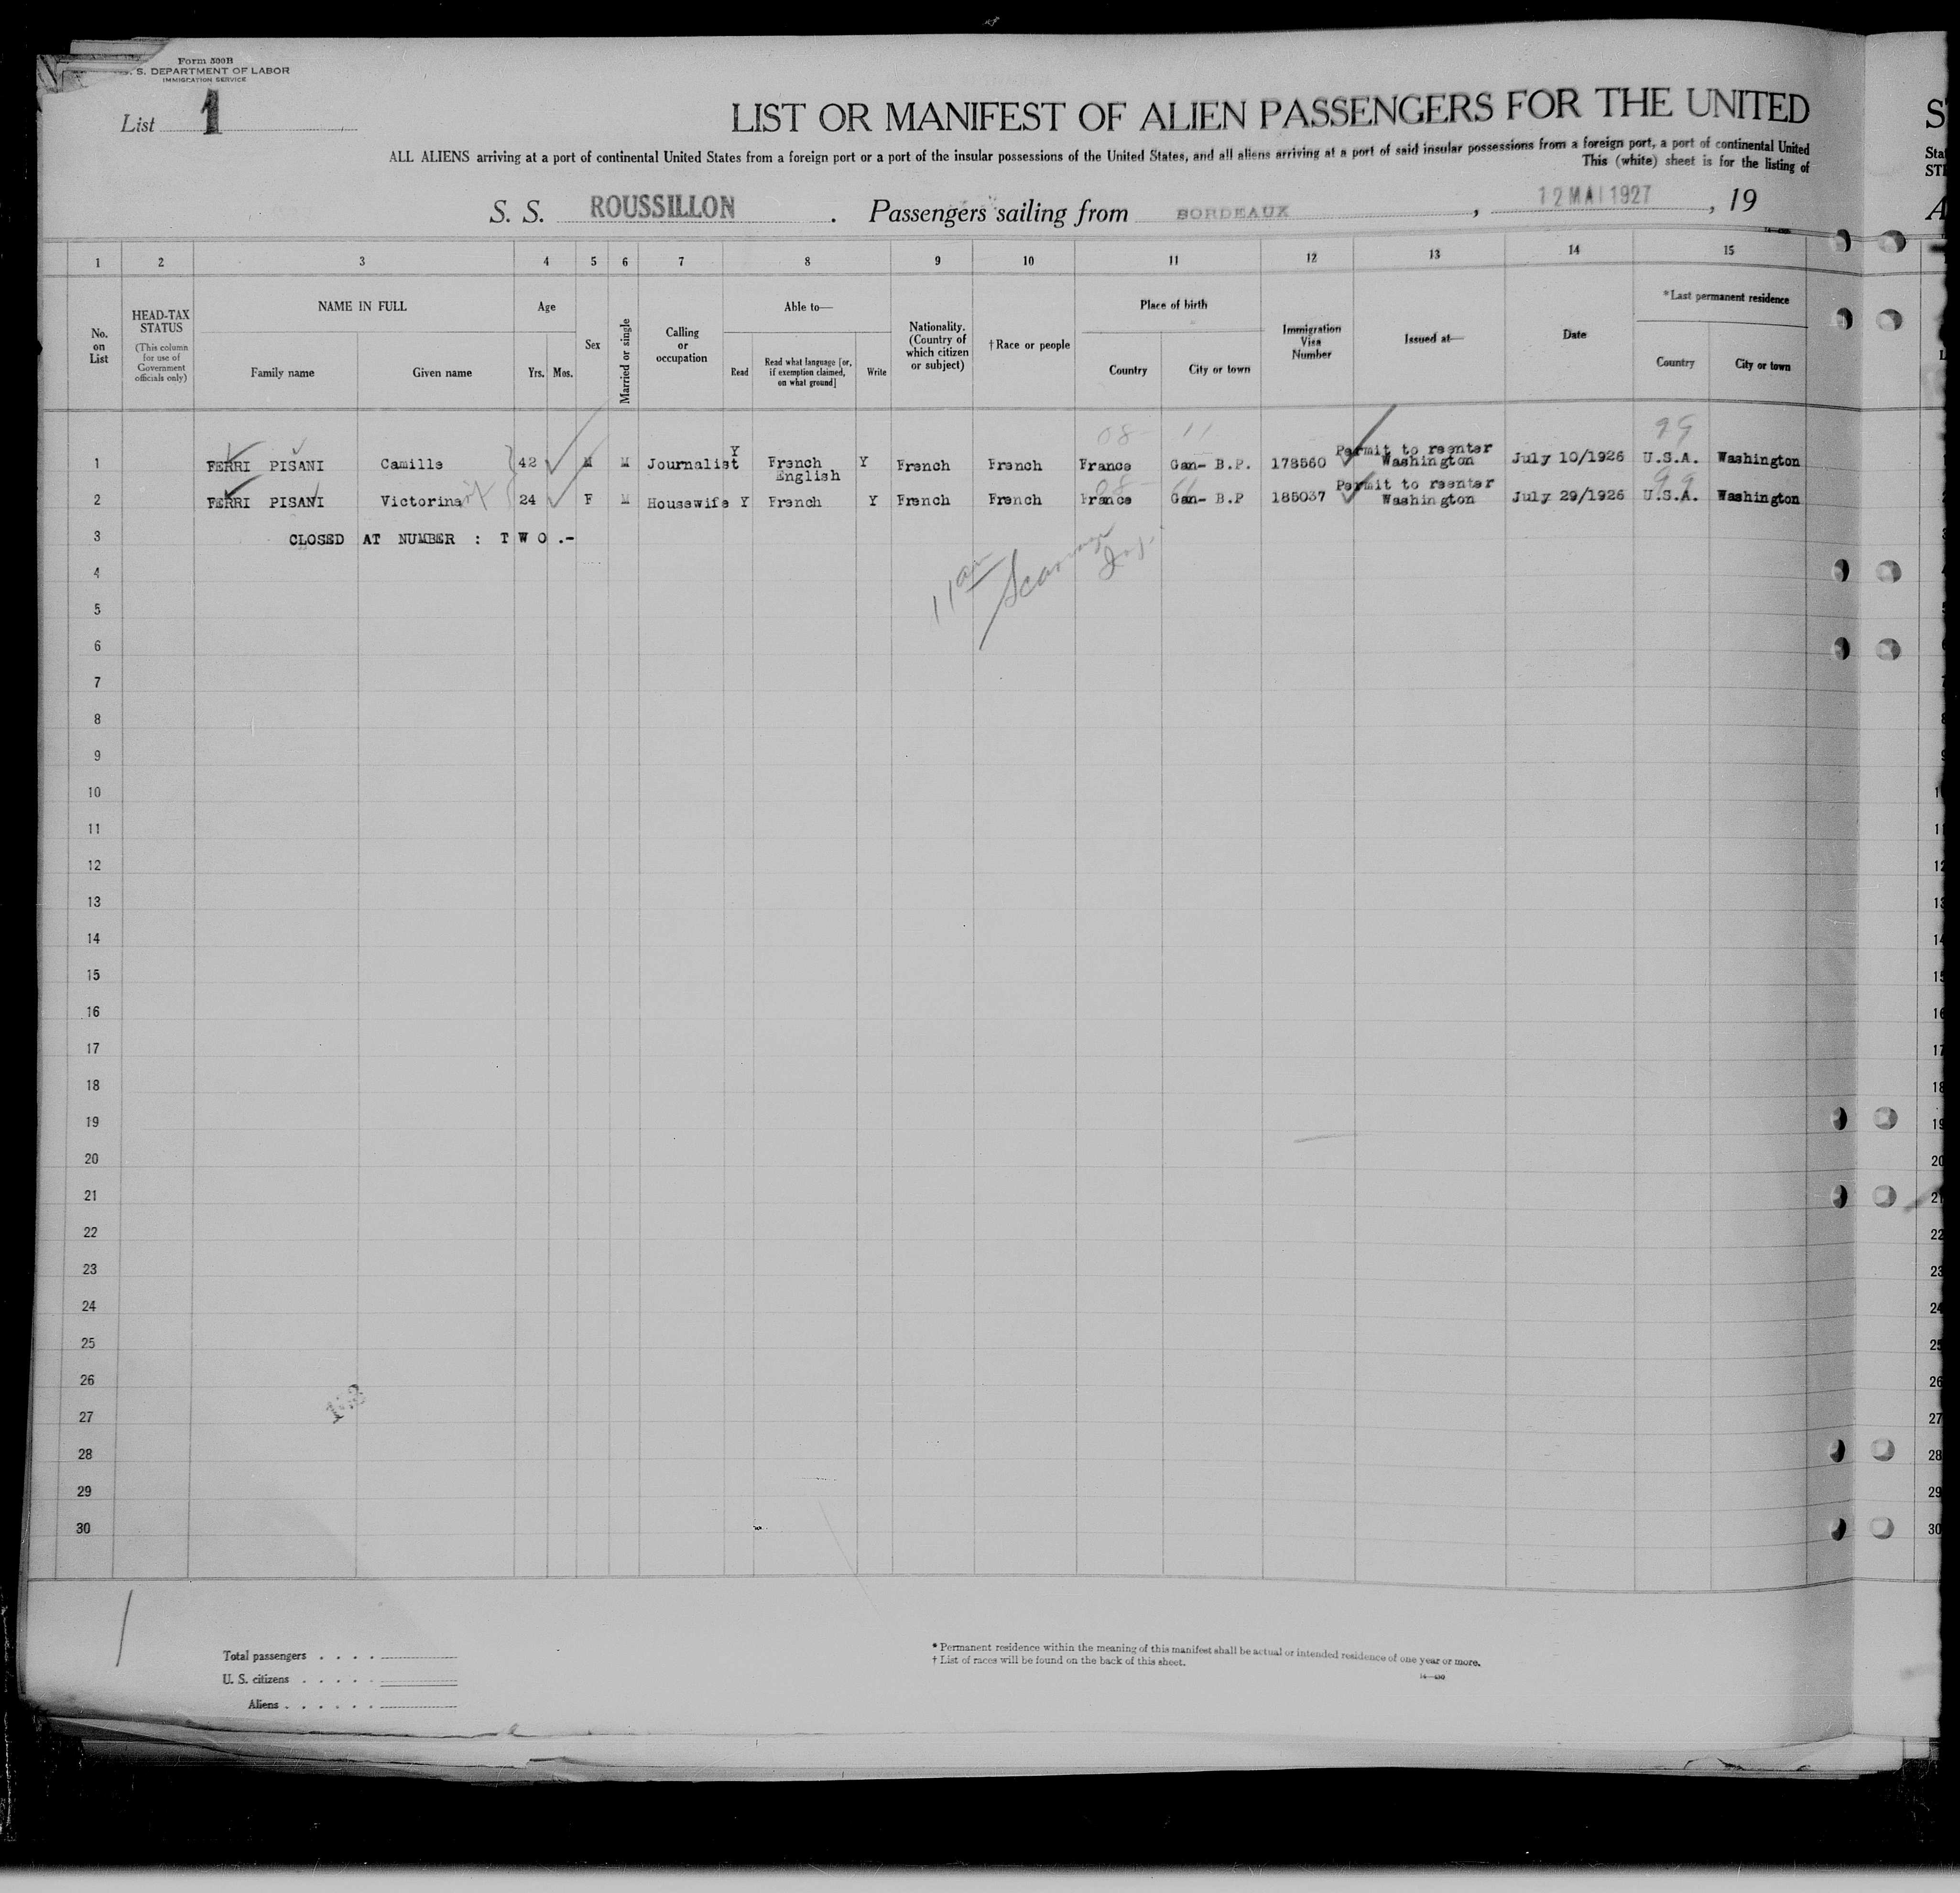 Form 500B
U. S. DEPARTMENT OF LABOR
IMMIGRATION SERVICE
List 1
LIST OR MANIFEST OF ALIEN PASSENGERS FOR THE UNITED
ALL ALIENS arriving at a port of continental United States from a foreign port or a port of the insular possessions of the United States, and all aliens arriving at a port of said insular possessions from a foreign port, a port of continental United
This (white) sheet is for the listing of
S. S. ROUSSILLON . Passengers sailing from BORDEAUX , 12 MAI 1927 , 19
1 2 3 4 5 6 7 8 9 10 11 12 13 14 15
No. on List
HEAD-TAX STATUS
(This column for use of Government officials only)
NAME IN FULL
Family name Given name
Age
Yrs. Mos.
Sex
Married or single
Calling or occupation
Able to—
Read
Read what language [or, if exemption claimed, on what ground]
Write
Nationality. (Country of which citizen or subject)
†Race or people
Place of birth
Country City or town
Immigration Visa Number
Issued at—
Date
*Last permanent residence
Country City or town
08- 11 99
1 FERRI PISANI Camille 42 M M Journalist Y French English Y French French France Gan- B.P. 178560 Permit to reenter Washington July 10/1926 U.S.A. Washington
08- 11 99
2 FERRI PISANI Victorina 24 F M Housewife Y French Y French French France Gan- B.P 185037 Permit to reenter Washington July 29/1926 U.S.A. Washington
3 CLOSED AT NUMBER : T W O .-
11 am
4
5
6
7
8
9
10
11
12
13
14
15
16
17
18
19
20
21
22
23
24
25
26
27
28
29
30
Total passengers . . . .
U. S. citizens . . . . .
Aliens . . . . . .
* Permanent residence within the meaning of this manifest shall be actual or intended residence of one year or more.
† List of races will be found on the back of this sheet.
14—430